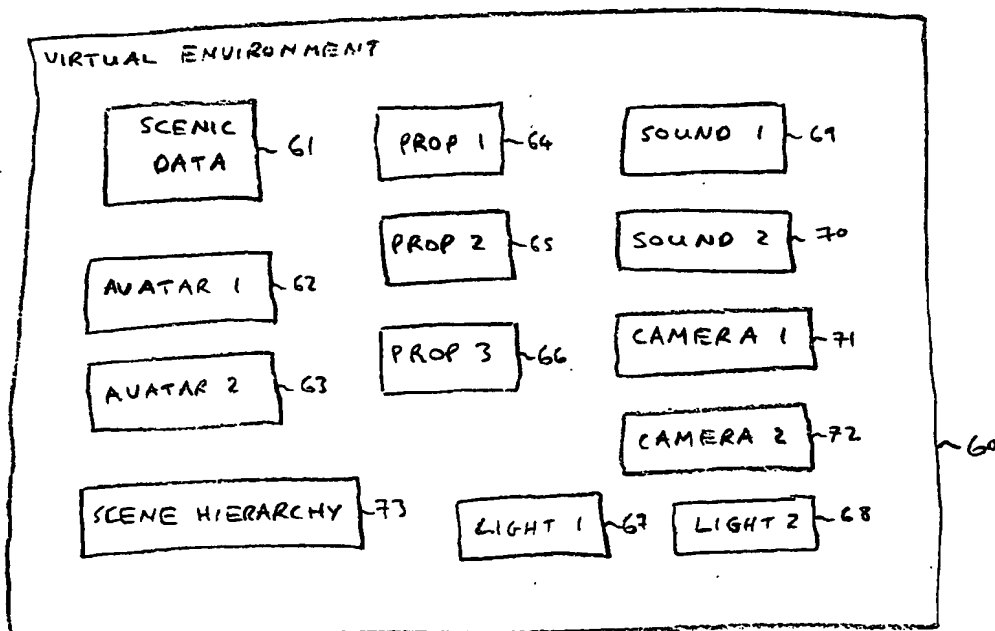 VIRTUAL ENVIRONMENT
SCENIC
DATA
61
PROP 1
64
SOUND 1
69
PROP 2
65
SOUND 2
70
AVATAR 1
62
PROP 3
66
CAMERA 1
71
AVATAR 2
63
CAMERA 2
72
60
SCENE HIERARCHY
73
LIGHT 1
67
LIGHT 2
68